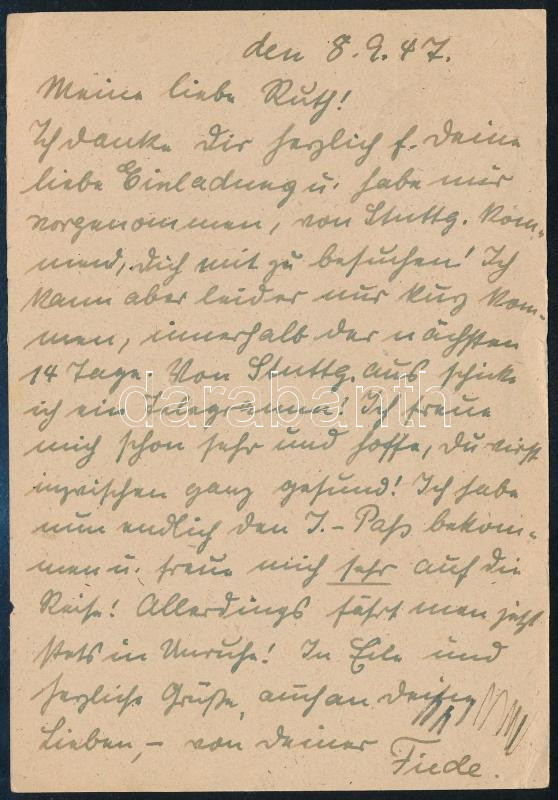 den 8.9.47.
Meine liebe Ruth!
Ich danke Dir herzlich f. Deine
liebe Einladung u. habe mir
vorgenommen, von Stuttg. kom-
mend, Dich mit zu besuchen! Ich
kann aber leider nur kurz kom-
men, innerhalb der nächsten
14 Tage. Von Stuttg. aus schicke
ich ein Telegramm! Ich freue
mich schon sehr und hoffe, Du wirst
inzwischen ganz gesund! Ich habe
nun endlich den I.-Paß bekom-
men u. freue mich sehr auf die
Reise! Allerdings fährt man jetzt
stets in Unruhe! In Eile und
herzliche Grüße, auch an Deine
Lieben, – von Deiner
Friede.
darabanth